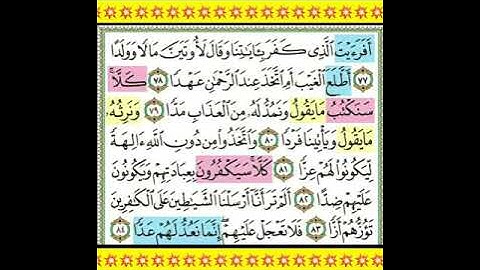 أَفَرَءَيْتَ ٱلَّذِى كَفَرَ بِـَٔايَٰتِنَا وَقَالَ لَأُوتَيَنَّ مَالًا وَوَلَدًا
٧٧ أَطَّلَعَ ٱلْغَيْبَ أَمِ ٱتَّخَذَ عِندَ ٱلرَّحْمَٰنِ عَهْدًا ٧٨ كَلَّا ۚ
سَنَكْتُبُ مَا يَقُولُ وَنَمُدُّ لَهُۥ مِنَ ٱلْعَذَابِ مَدًّا ٧٩ وَنَرِثُهُۥ
مَا يَقُولُ وَيَأْتِينَا فَرْدًا ٨٠ وَٱتَّخَذُوا۟ مِن دُونِ ٱللَّهِ ءَالِهَةً
لِّيَكُونُوا۟ لَهُمْ عِزًّا ٨١ كَلَّا ۚ سَيَكْفُرُونَ بِعِبَادَتِهِمْ وَيَكُونُونَ
عَلَيْهِمْ ضِدًّا ٨٢ أَلَمْ تَرَ أَنَّآ أَرْسَلْنَا ٱلشَّيَٰطِينَ عَلَى ٱلْكَٰفِرِينَ
تَؤُزُّهُمْ أَزًّا ٨٣ فَلَا تَعْجَلْ عَلَيْهِمْ ۖ إِنَّمَا نَعُدُّ لَهُمْ عَدًّا ٨٤